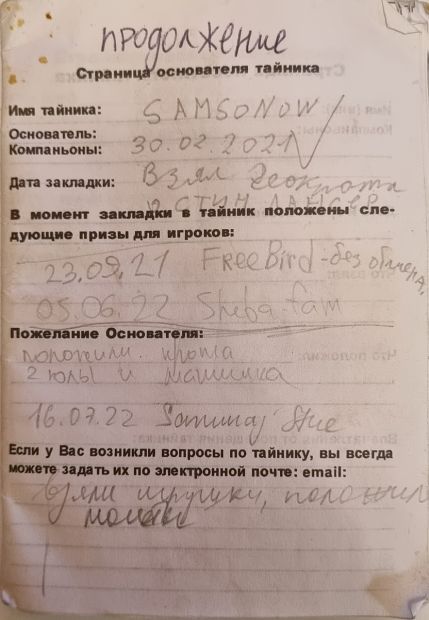 продолжение
Страница основателя тайника
Имя тайника: SAMSONOW
Основатель:
Компаньоны: 30.02.2021
Дата закладки: Взял Геокрота
В момент закладки в тайник положены сле-
дующие призы для игроков:
23.09.21 FreeBird - без обмена,
05.06.22 Sheba-fam
Пожелание Основателя:
положили крота
2 юлы и машинка
16.07.22
Если у Вас возникли вопросы по тайнику, вы всегда
можете задать их по электронной почте: email:
Взяли игрушку, положили